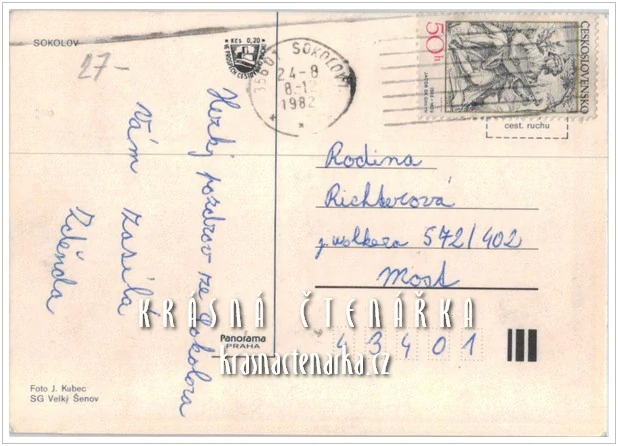 SOKOLOV
27-
Kčs 0,20
356 01 SOKOLOV 1
24-8
8-12
1982
50h
ČESKOSLOVENSKO
cest. ruchu
Hezký pozdrav ze Sokolova
Vám zasílá
Zdenda
Rodina
Richterová
J. Wolkera 572/402
Most
43401
KRÁSNÁ ČTENÁŘKA
krasnactenarka.cz
Panorama
PRAHA
Foto J. Kubec
SG Velký Šenov